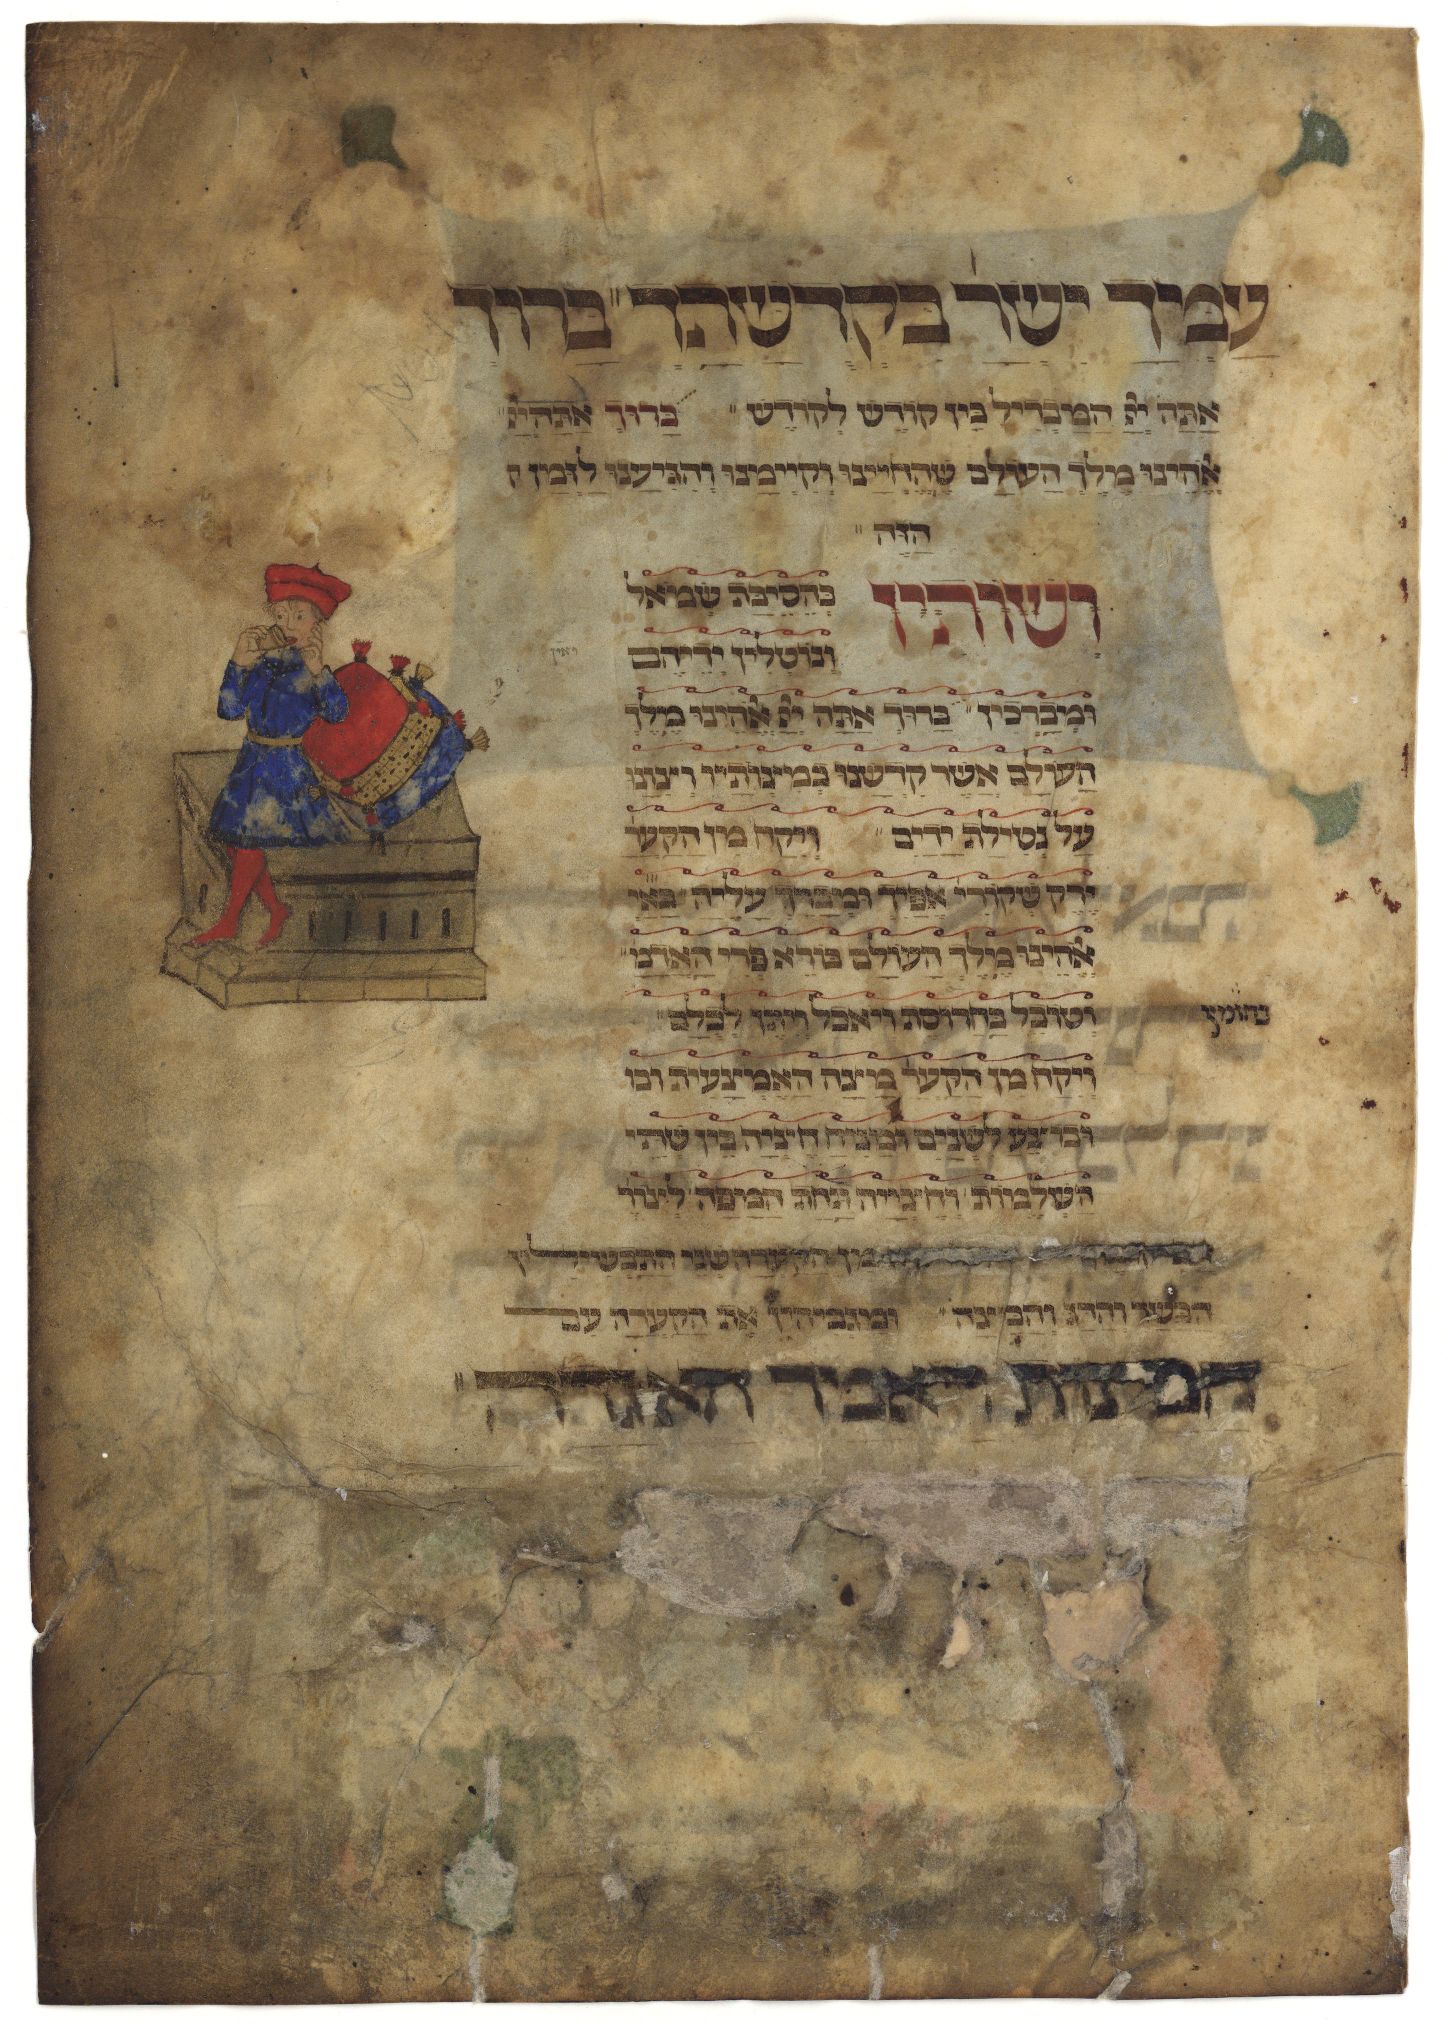 עַמְּךָ יִשְׂרָ' בִּקְדֻשָּׁתֶךָ׃ בָּרוּךְ
אַתָּה יְיָ הַמַבְדִיל בֵּין קוֹדֶשׁ לְקוֹדֶשׁ׃ בָּרוּךְ אַתָּה יְיָ
אֱלֹהֵינוּ מֶלֶךְ הָעוֹלָם שֶׁהֶחֱיָינוּ וְקִיְימָנוּ וְהִגִיעָנוּ לַזְמַן
הַזֶה׃
וְשׁוֹתִין
בְּהַסִיבַּת שְׂמֹאל
וְנוֹטְלִין יְדֵיהֶם
וּמְבָרְכִין׃ בָּרוּךְ אַתָּה יְיָ אֱלֹהֵינוּ מֶלֶךְ
הָעוֹלָם אֲשֶׁר קִדְשָׁנוּ בְּמִצְוֹתָיו וְצִוָנוּ
עַל נְטִילַת יָדַיִם׃ וְיִקַח מִן הַקְעָר'
יָרָק שֶׁקוֹרִי' אֶפִּיך וּמְבָרֵךְ עָלֶיהָ בָּא"יָ
אֱלֹהֵינוּ מֶלֶךְ הָעוֹלָם בּוֹרֵא פְּרִי הָאֲדָמָ'
וְטוֹבֵל בַּחֲרוֹסֶת וְיֹאכַל וְיִתֵן לְכֻלָם׃
בחומץ
וְיִקַח מִן הַקְעָר' מַצָה הָאֶמְצָעִית
וּבוֹצְעָ' לִשְׁנַיִם וּמַנִיחַ חֶצְיָהּ בֵּין שְׁתֵי
הַשְׁלֵמוֹת וְחֶצְיָיהּ תַּחַת הַמַפָּה
מִן הַקְעָרָה שְׁנֵי הַתַבְשִׁילִין
הַבָּשָׂר וְהַדָג וְהַבֵּיצָה׃ וּמַגְבִּיהִין אֶת הַקְעָרָה עִם
הַמַצּוֹת וְאֹמֵר הָאַגָדָה׃